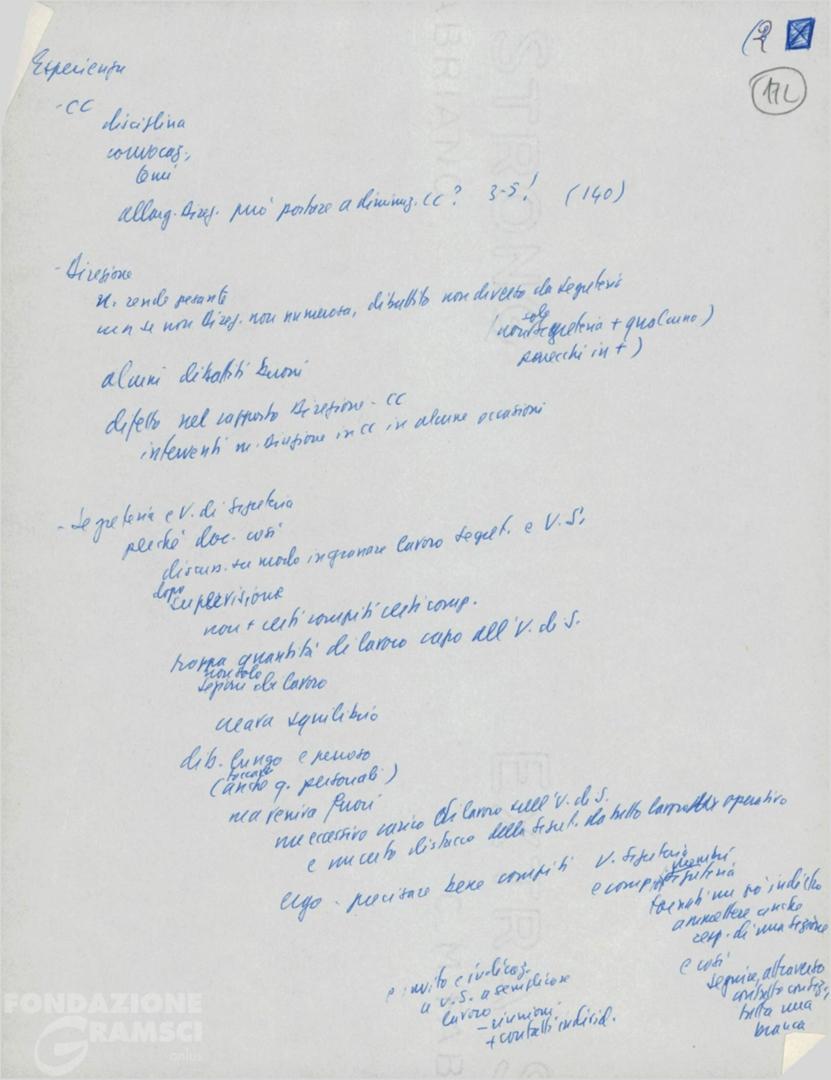 (2
172
Esperienze
- CC
disciplina
convocaz.
temi
allarg. Direz. può portare a diminuz. CC? 3-5! (140)
- Direzione
n. rende pesante
ma se non Direz. non numerosa, dibattito non diverso da Segreteria
(non solo Segreteria + qualcuno)
parecchi in +)
alcuni dibattiti buoni
difetto nel rapporto Direzione - CC
interventi m. Direzione in CC in alcune occasioni
- Segreteria e V. di Segreteria
perché doc. così
discuss. su modo ingranare lavoro Segret. e V.S.
dopo supervisione
non + certi compiti certi comp.
troppa quantità di lavoro capo all'V. di S.
non solo
sezioni di lavoro
creava squilibrio
dib. lungo e penoso
(toccate anche q. personali)
ma veniva fuori
un eccessivo carico di lavoro sull'V. di S.
e un certo distacco della Segret. da tutto lavoro operativo
ergo - precisare bene compiti V. Segreteria
e compiti membri Segreteria
tornati un po' indietro
ammettere anche
resp. di una sezione
e così
seguire, attraverso
contatto
tutta una
branca
e invito e indicaz.
a V.S. a semplificare
lavoro
- riunioni
+ contatti individ.
FONDAZIONE
GRAMSCI
onlus